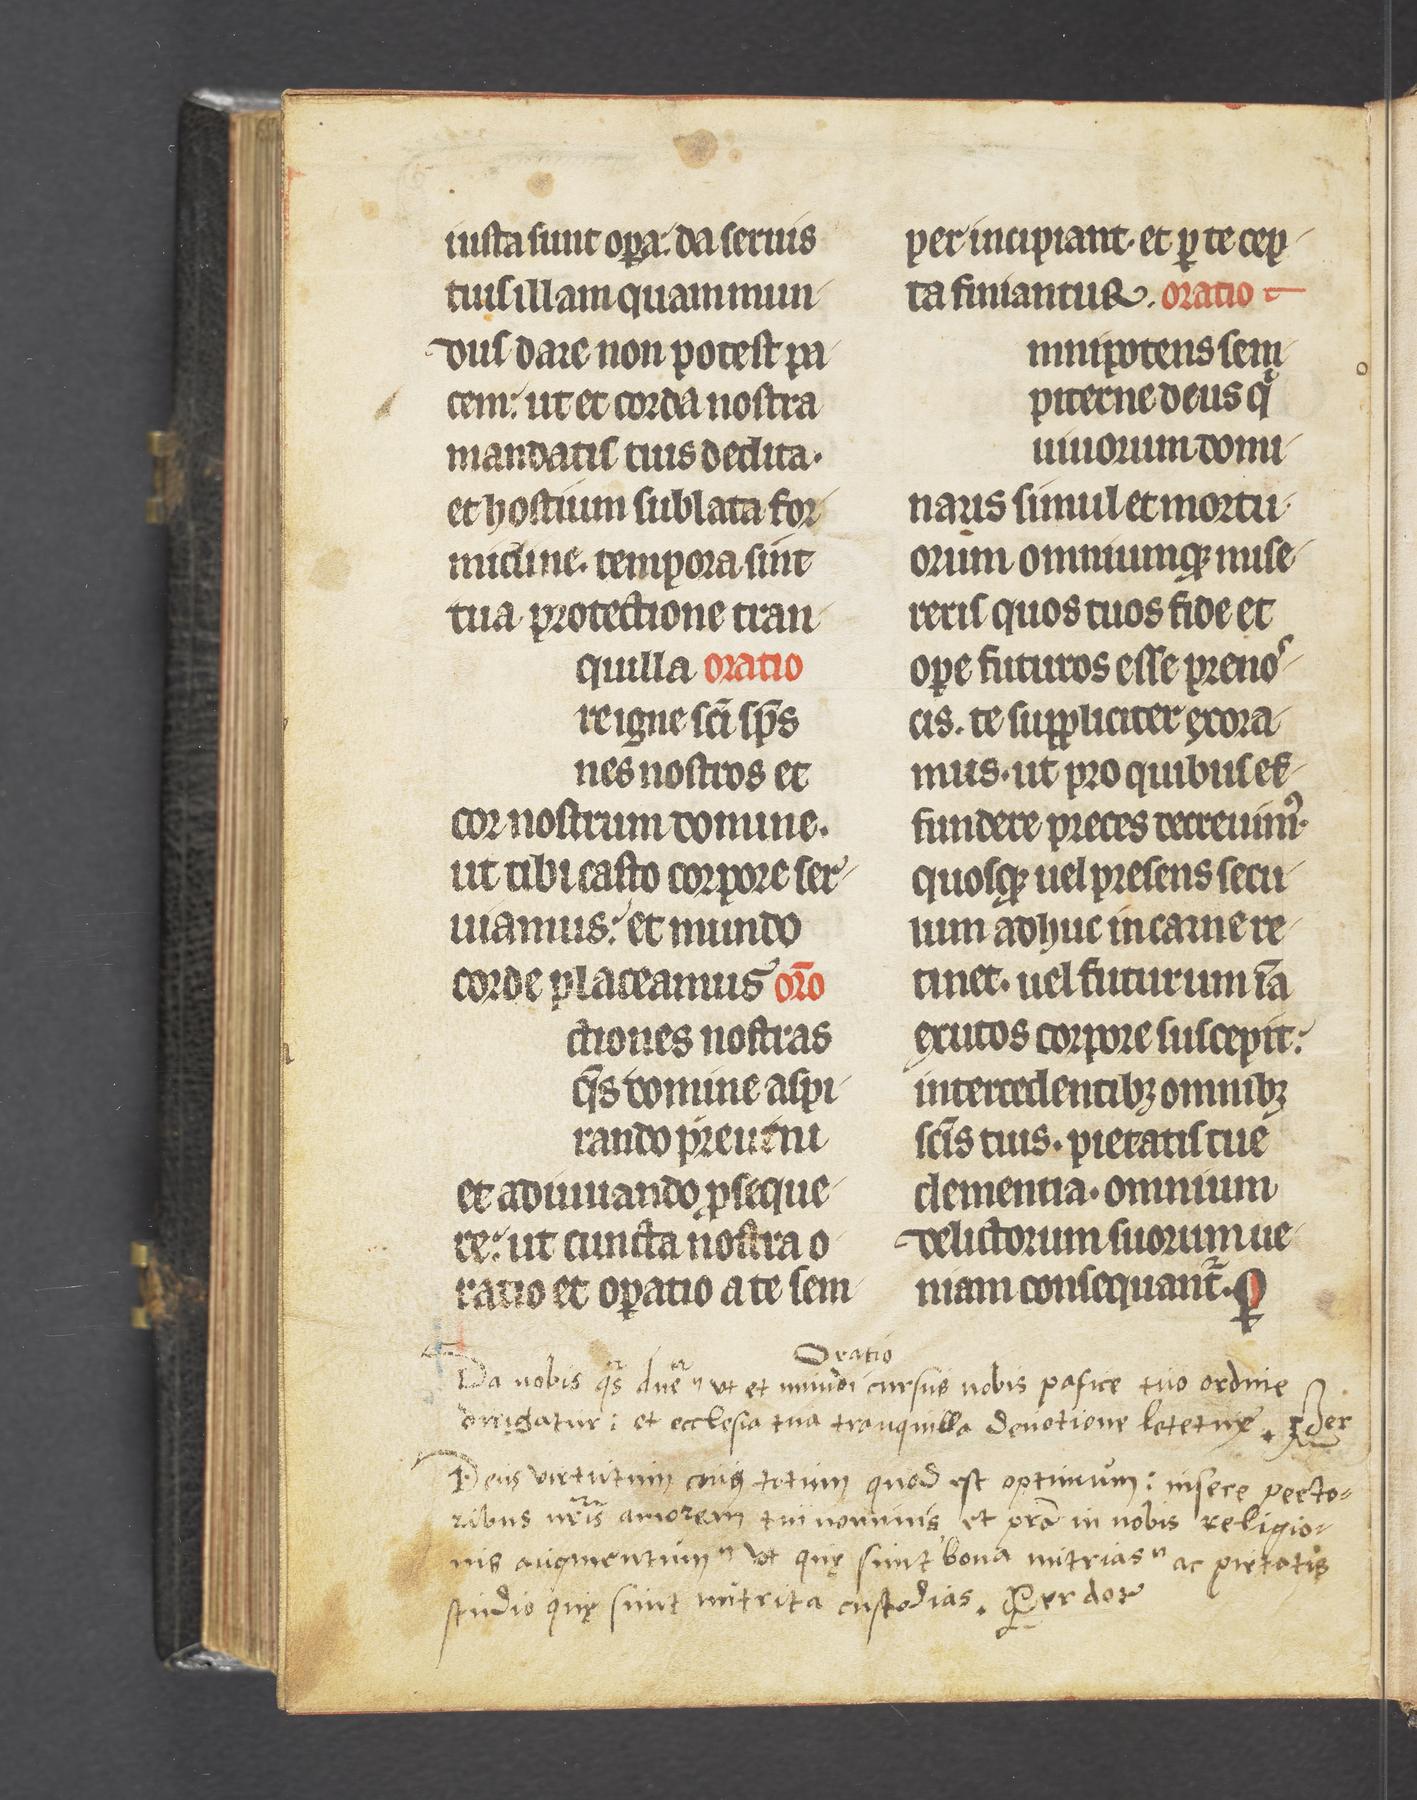 iusta sunt op̲a: da seruis
tuis illam quam mun
dus dare non potest pa
cem: ut et corda nostra
mandatis tuis dedita.
et hostium sublata for
midine. tempora sint
tua protectione tran
quilla oratio
re igne sc̄i sp̄s
nes nostros et
cor nostrum domine.
ut tibi casto corpore ser
uiamus: et mundo
corde placeamus or̄o
ctiones nostras
q̄s domine aspi
rando preueni
et adiuuando ꝓseque
re: ut cuncta nostra o
ratio et op̲atio a te sem
per incipiant. et p̲ te cep
ta finiantur. oratio
mnipotens sem
piterne deus qͥ
uiuorum domi
naris simul et mortu
orum omniumqꝫ mise
reris quos tuos fide et
ope futuros esse prenos
cis. te suppliciter exora
mus. ut pro quibus ef
fundere preces decreuimꝰ
quosqꝫ uel presens secu
lum adhuc in carne re
tinet. uel futurum iā
exutos corpore suscepit:
intercedentibꝫ omnibꝫ
sc̄is tuis. pietatis tue
clementia. omnium
delictorum suorum ue
niam consequant᷑. ꝑ
Oratio
Da nobis q̄s dn̄e ut et mundi cursus nobis pafice tuo ordine
dirigatur: et ecclesia tua tranquilla deuotione letetur. Per
Deus virtutum cuiꝰ totum quod est optimum: insere pecto-
ribus nr̄is amorem tui nominis et prā in nobis religio-
nis augmentum ut quę sunt bona nutrias ac pietatis
studio quę sunt nutrita custodias. Per dom̄